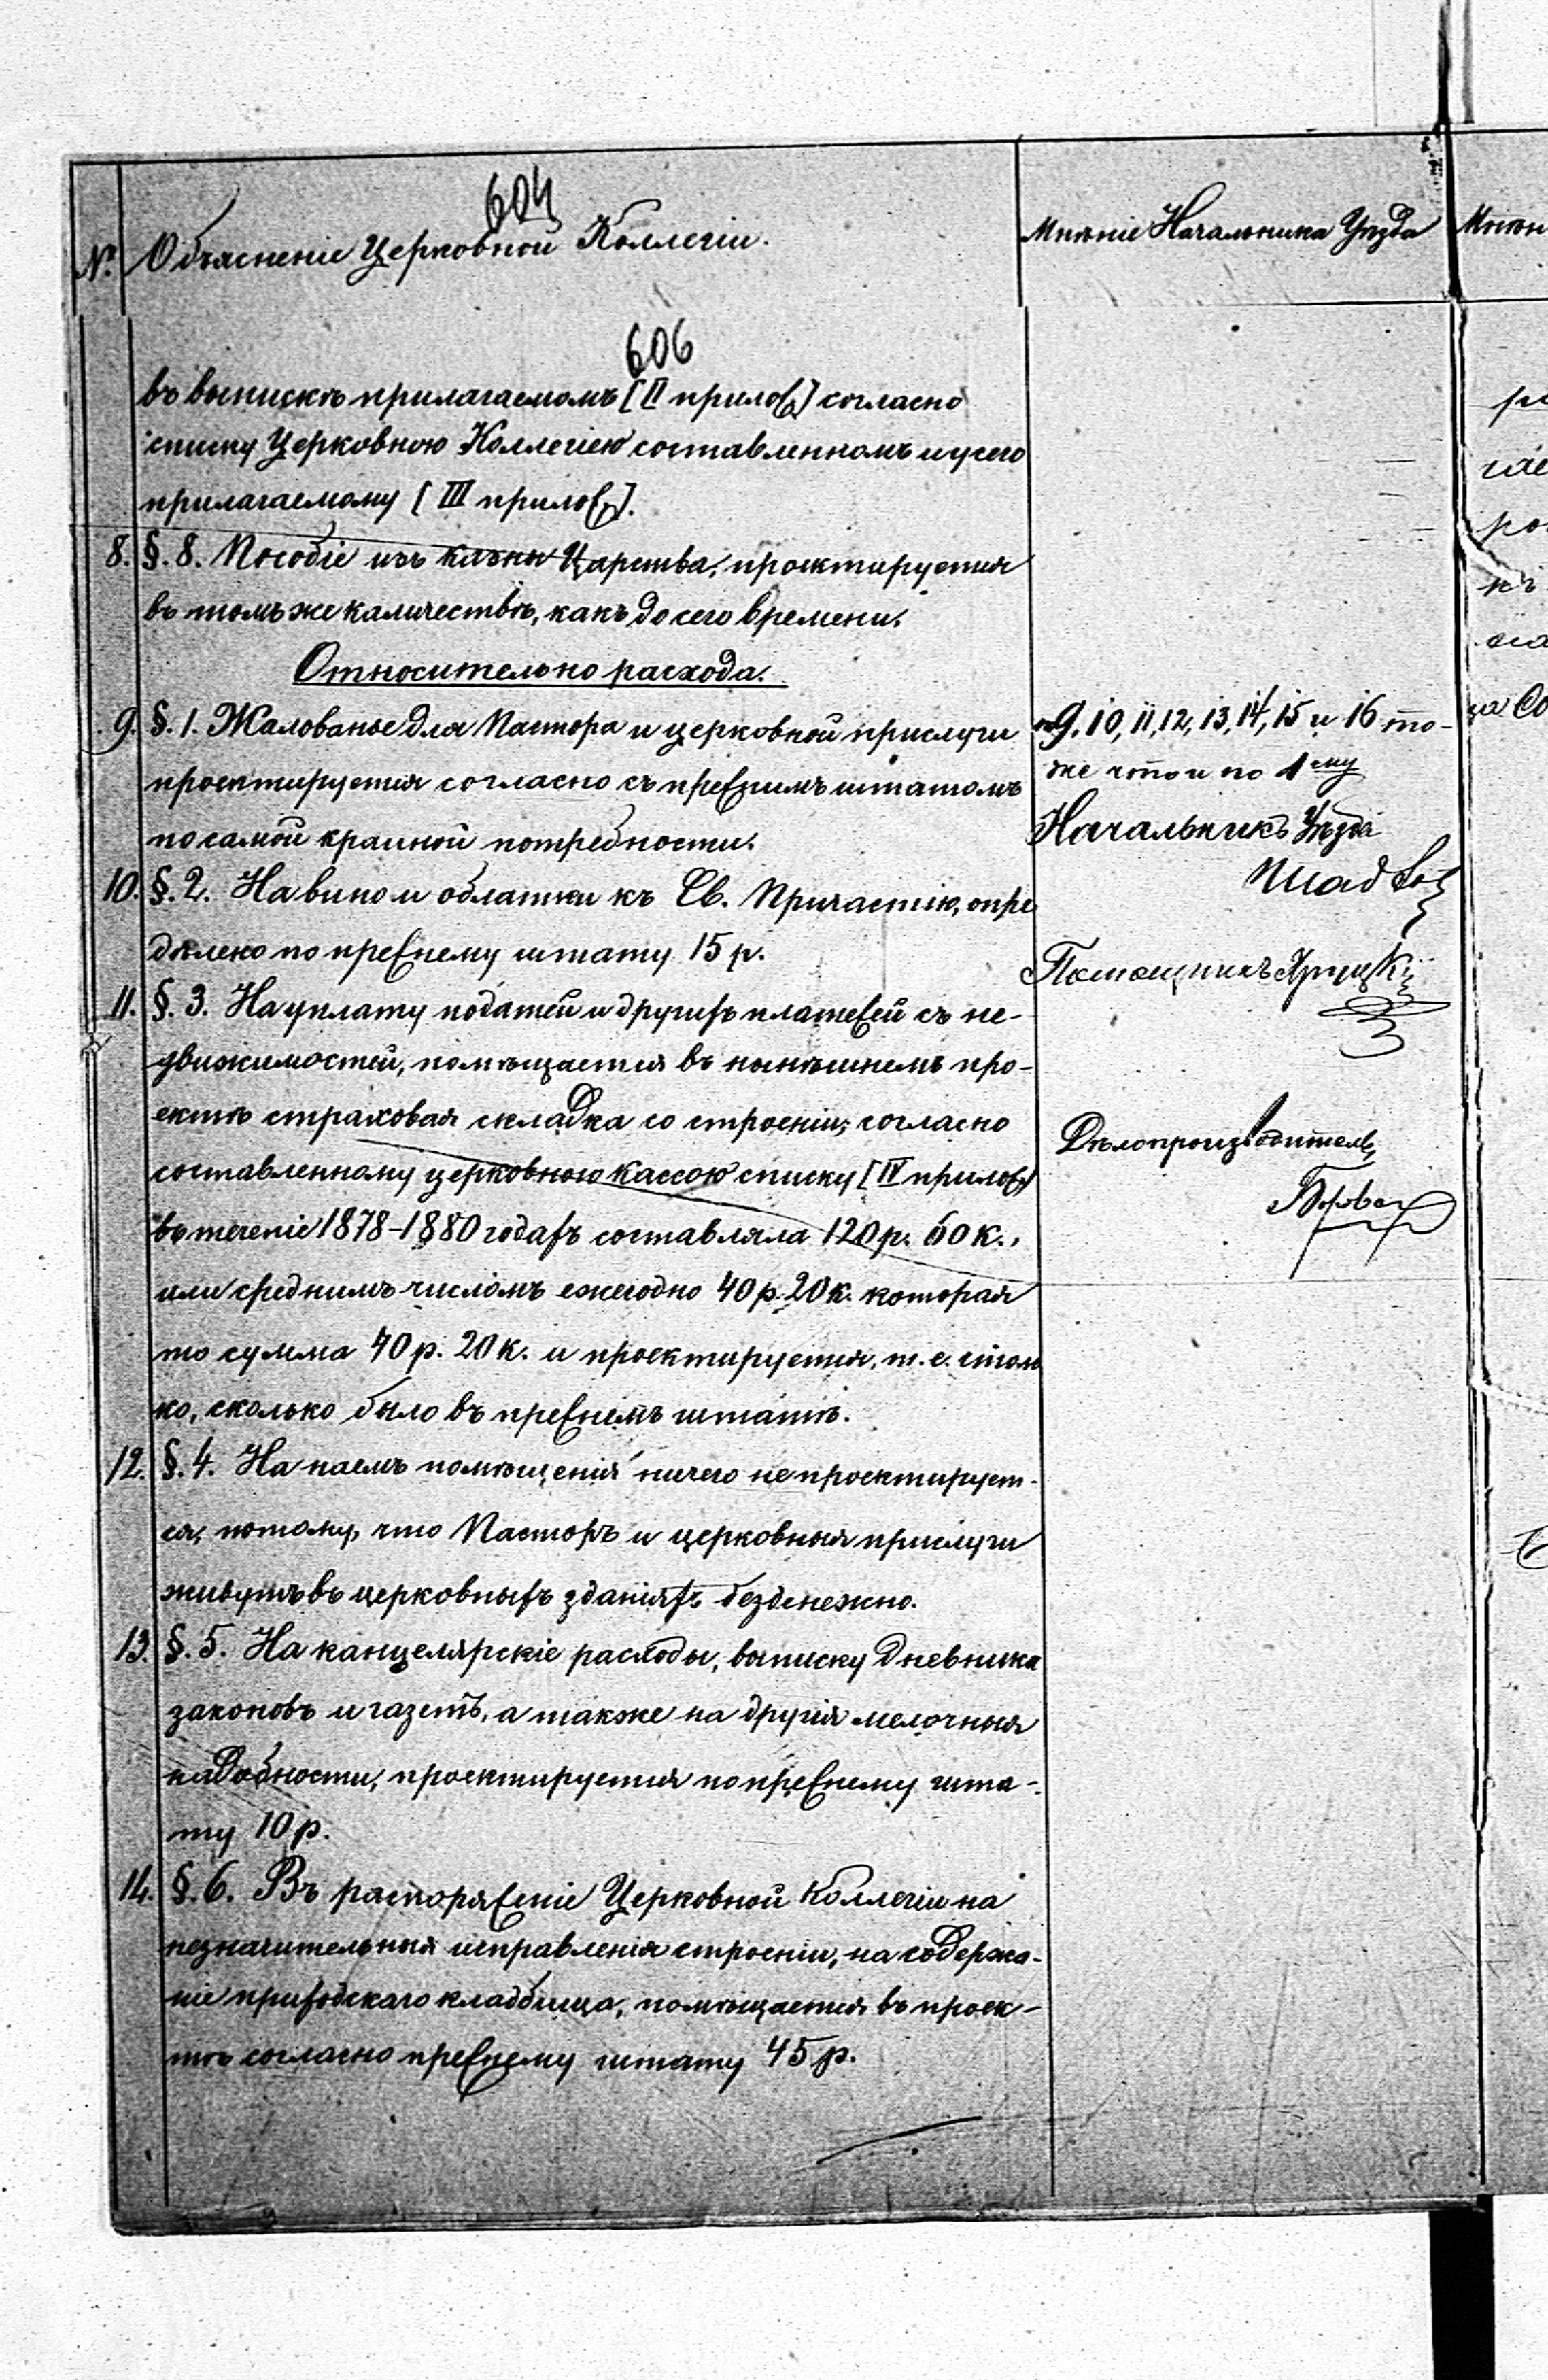 604
№ Объясненіе Церковной Коллегіи.
Мнѣніе Начальника Уѣзда
606
въ выпискѣ прилагаемомъ [II прилож] согласно
списку Церковною Коллегіею составленномъ и у сего
прилагаемому [III прилож].
8. §. 8. Пособіе изъ казны Царства, проектируется
въ томъ же каличествѣ, какъ до сего времени.
Относительно расхода.
9. §. 1. Жалованье для Пастора и церковной прислуги
проектируется согласно съ прежнимъ штатомъ
по самой крайной потребности.
10. §. 2. На вино и облатки къ Св. Причастію, опре
дѣлено по прежнему штату 15 р.
11. §. 3. На уплату податей и другихъ платежей съ не-
движимостей, помѣщается въ нынѣшнемъ про-
ектѣ страховая складка со строеній, согласно
составленному церковною кассою списку [IV прилож]
въ теченіе 1878-1880 годахъ составляла 120 р. 60 к.,
или среднимъ числомъ ежегодно 40 р. 20 к. которая
то сумма 40 р. 20 к. и проектируется, т. е. столь
ко, сколько было въ прежнемъ штатѣ.
12. §. 4. На наемъ помѣщенія ничего не проектирует-
ся, потому, что Пасторъ и церковныя прислуги
живутъ въ церковныхъ зданіяхъ безденежно.
13. §. 5. На канцелярскіе расходы, выписку Дневника
законовъ и газетъ, а также на другія мелочныя
надобности, проектируется по прежнему шта-
ту 10 р.
14. §. 6. Въ распоряженіе Церковной Коллегіи на
незначительныя исправленія строеній, на содержа-
ніе приходскаго кладбища, помѣщается въ проек-
тѣ согласно прежнему штату 45 р.
9, 10, 11, 12, 13, 14, 15 и 16 то-
же что и по 1ему
Начальникъ Уѣзда
Помощникъ
Дѣлопроизводитель